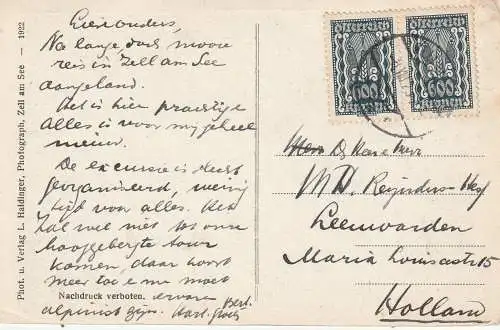 Liese ouders,
Na lange, doch mooie
reis in Zell am See
aangeland.
Het is hier prachtig
Alles is voor mij geheel
nieuw.
De excursie is slecht
georganiseerd, weinig
tijd voor alles. Het
zal wel niet tot onze
hooggebergte tour
komen, daar voor
meer toe e me moet
ervaren
alpinist zijn. Hart. groet
Bert.
Nachdruck verboten.
Phot. u. Verlag L. Haidinger, Photograph, Zell am See — 1922
600 600
Kronen Kronen
M H. Reijnders
Leeuwarden
Maria Louisastr 15
Holland